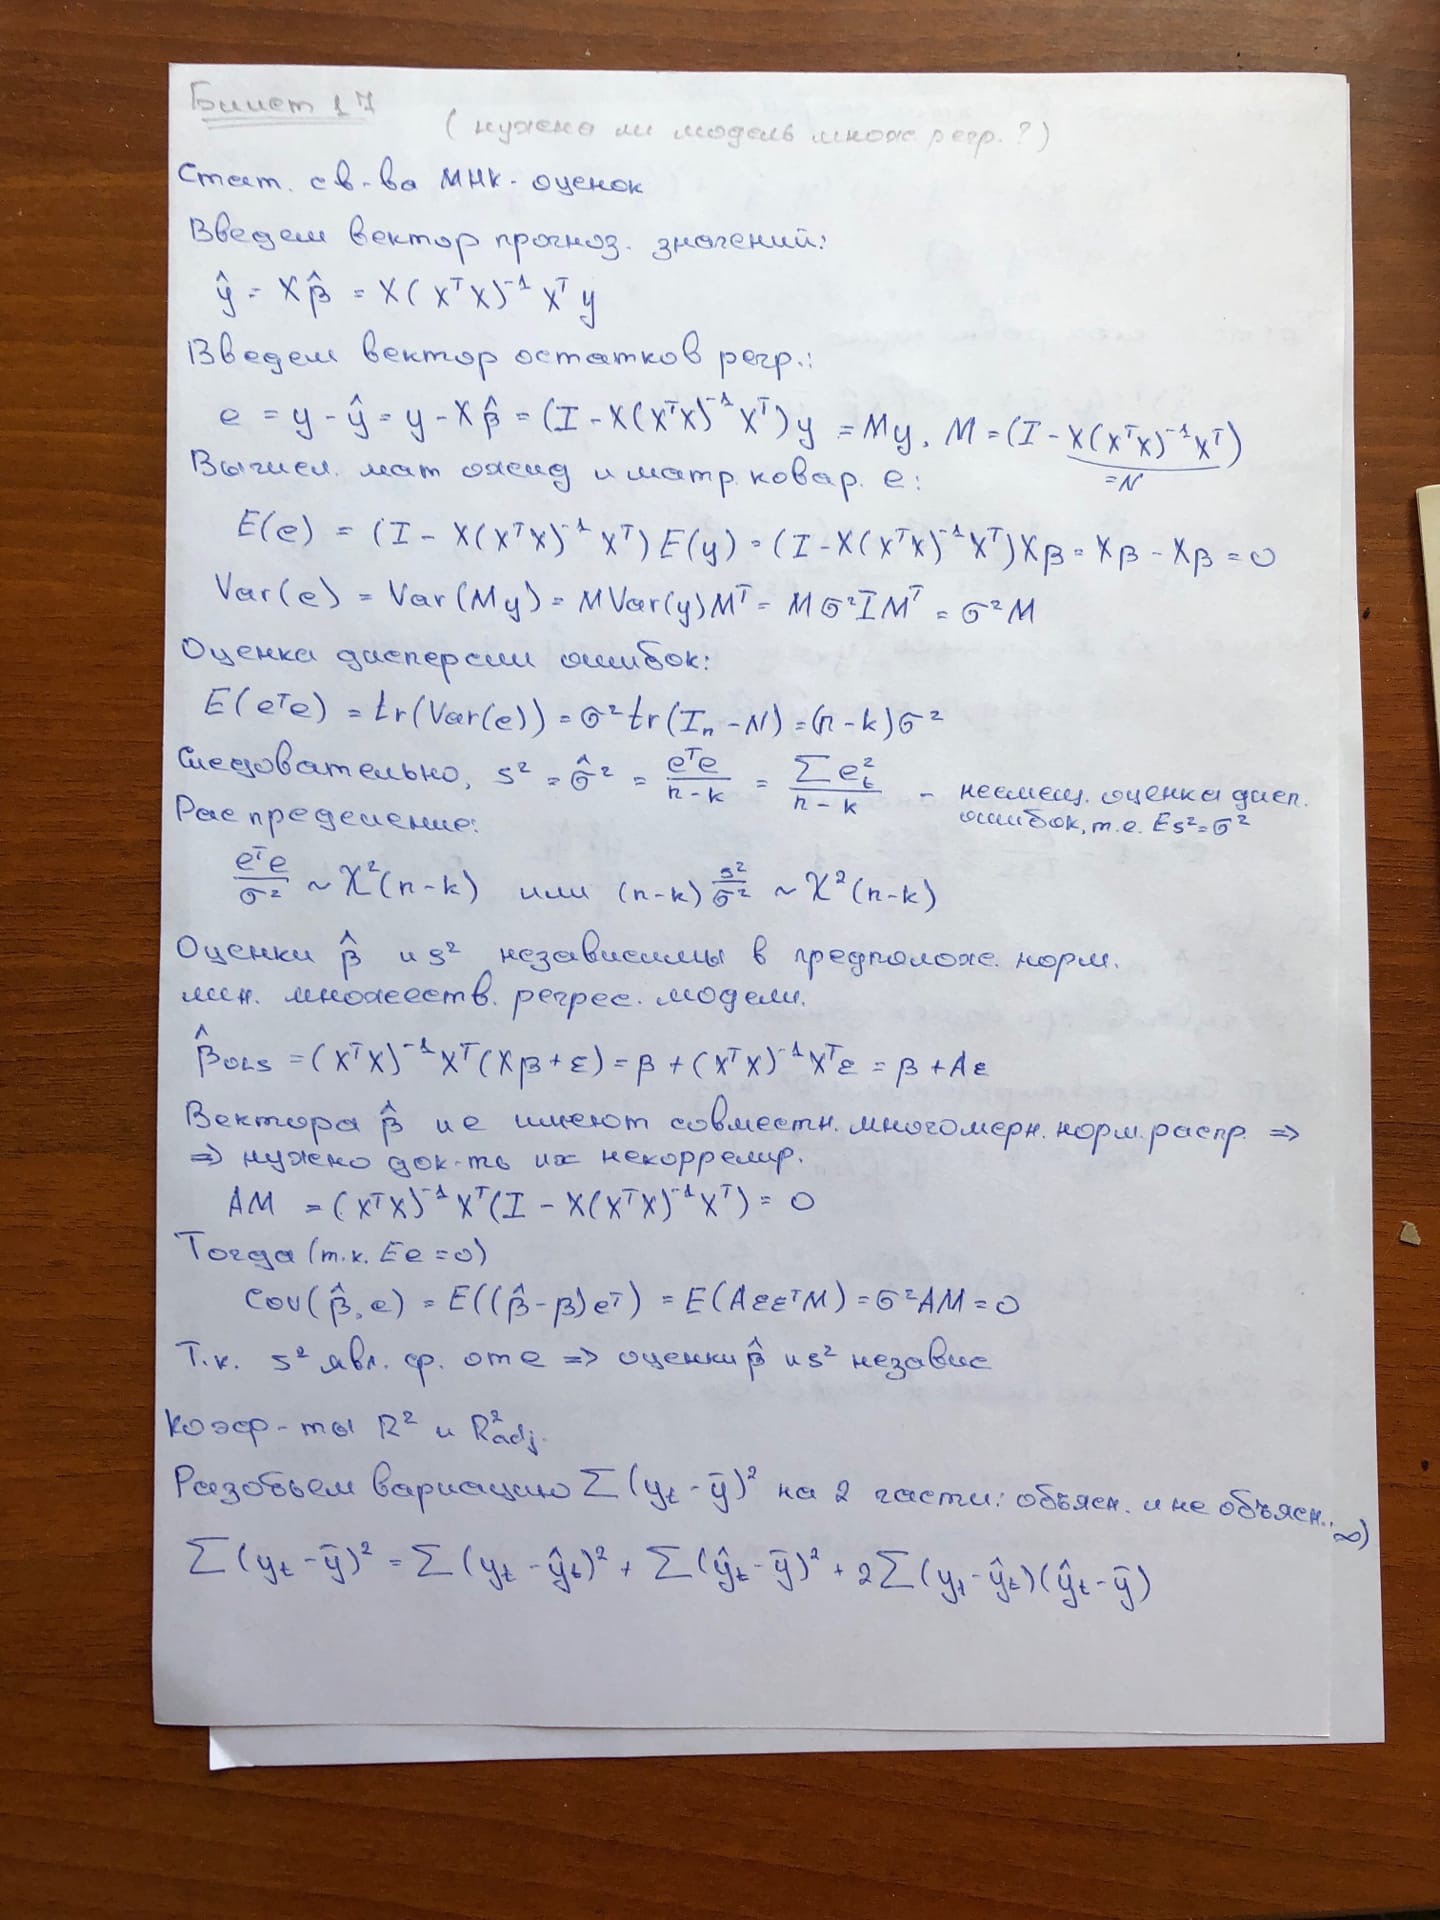 Билет 17
(нужена ли модель множ. регр.?)
Стат. св-ва МНК-оценок
Введем вектор прогноз. значений:
ŷ = Xβ̂ = X(XᵀX)⁻¹Xᵀy
Введем вектор остатков регр.:
e = y - ŷ = y - Xβ̂ = (I - X(XᵀX)⁻¹Xᵀ)y = My, M = (I - X(XᵀX)⁻¹Xᵀ)
=N
Вычисл. мат ожид и матр. ковар. e:
E(e) = (I - X(XᵀX)⁻¹Xᵀ)E(y) = (I - X(XᵀX)⁻¹Xᵀ)Xβ = Xβ - Xβ = 0
Var(e) = Var(My) = MVar(y)Mᵀ = Mσ²IMᵀ = σ²M
Оценка дисперсии ошибок:
E(eᵀe) = tr(Var(e)) = σ²tr(Iₙ - N) = (n-k)σ²
Следовательно, s² = σ̂² = eᵀe/(n-k) = ∑eₜ²/(n-k) - несмещ. оценка дисп.
ошибок, т.е. Es²=σ²
Распределение:
eᵀe/σ² ~ χ²(n-k) или (n-k) s²/σ² ~ χ²(n-k)
Оценки β̂ и s² независимы в предполож. норм.
лин. множеств. регрес. модели.
β̂OLS = (XᵀX)⁻¹Xᵀ(Xβ+ε) = β + (XᵀX)⁻¹Xᵀε = β + Aε
Вектора β̂ и e имеют совместн. многомерн. норм. распр. ⇒
⇒ нужно док-ть их некоррелир.
AM = (XᵀX)⁻¹Xᵀ(I - X(XᵀX)⁻¹Xᵀ) = 0
Тогда (т.к. Ee = 0)
Cov(β̂, e) = E((β̂-β)eᵀ) = E(AεεᵀM) = σ²AM = 0
Т.к. s² явл. ф. от e ⇒ оценки β̂ и s² независ
Коэф-ты R² и R²adj.
Разобьем вариацию ∑(yₜ - ȳ)² на 2 части: объясн. и не объясн.
∑(yₜ - ȳ)² = ∑(yₜ - ŷₜ)² + ∑(ŷₜ - ȳ)² + 2∑(yₜ - ŷₜ)(ŷₜ - ȳ)